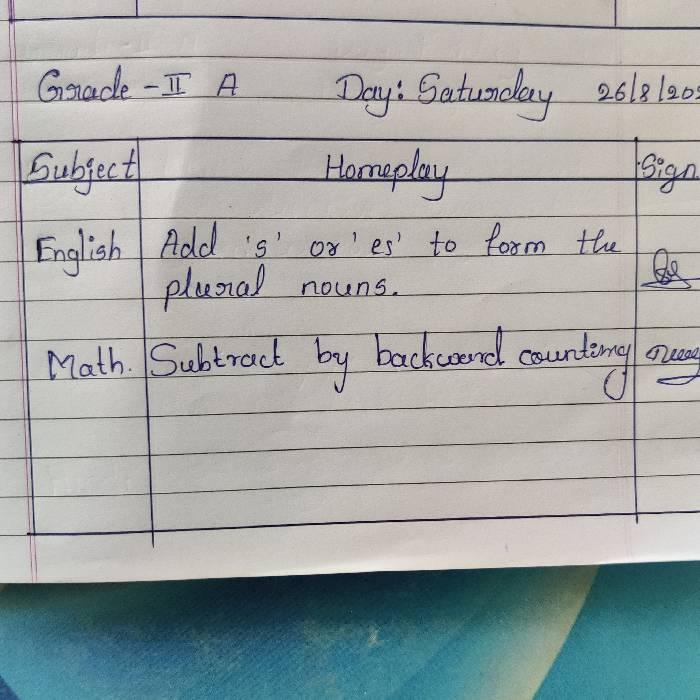 Grade - II A Day: Saturday 26/8/20
Subject Homeplay Sign
English Add 's' or 'es' to form the
plural nouns.
Math. Subtract by backward counting